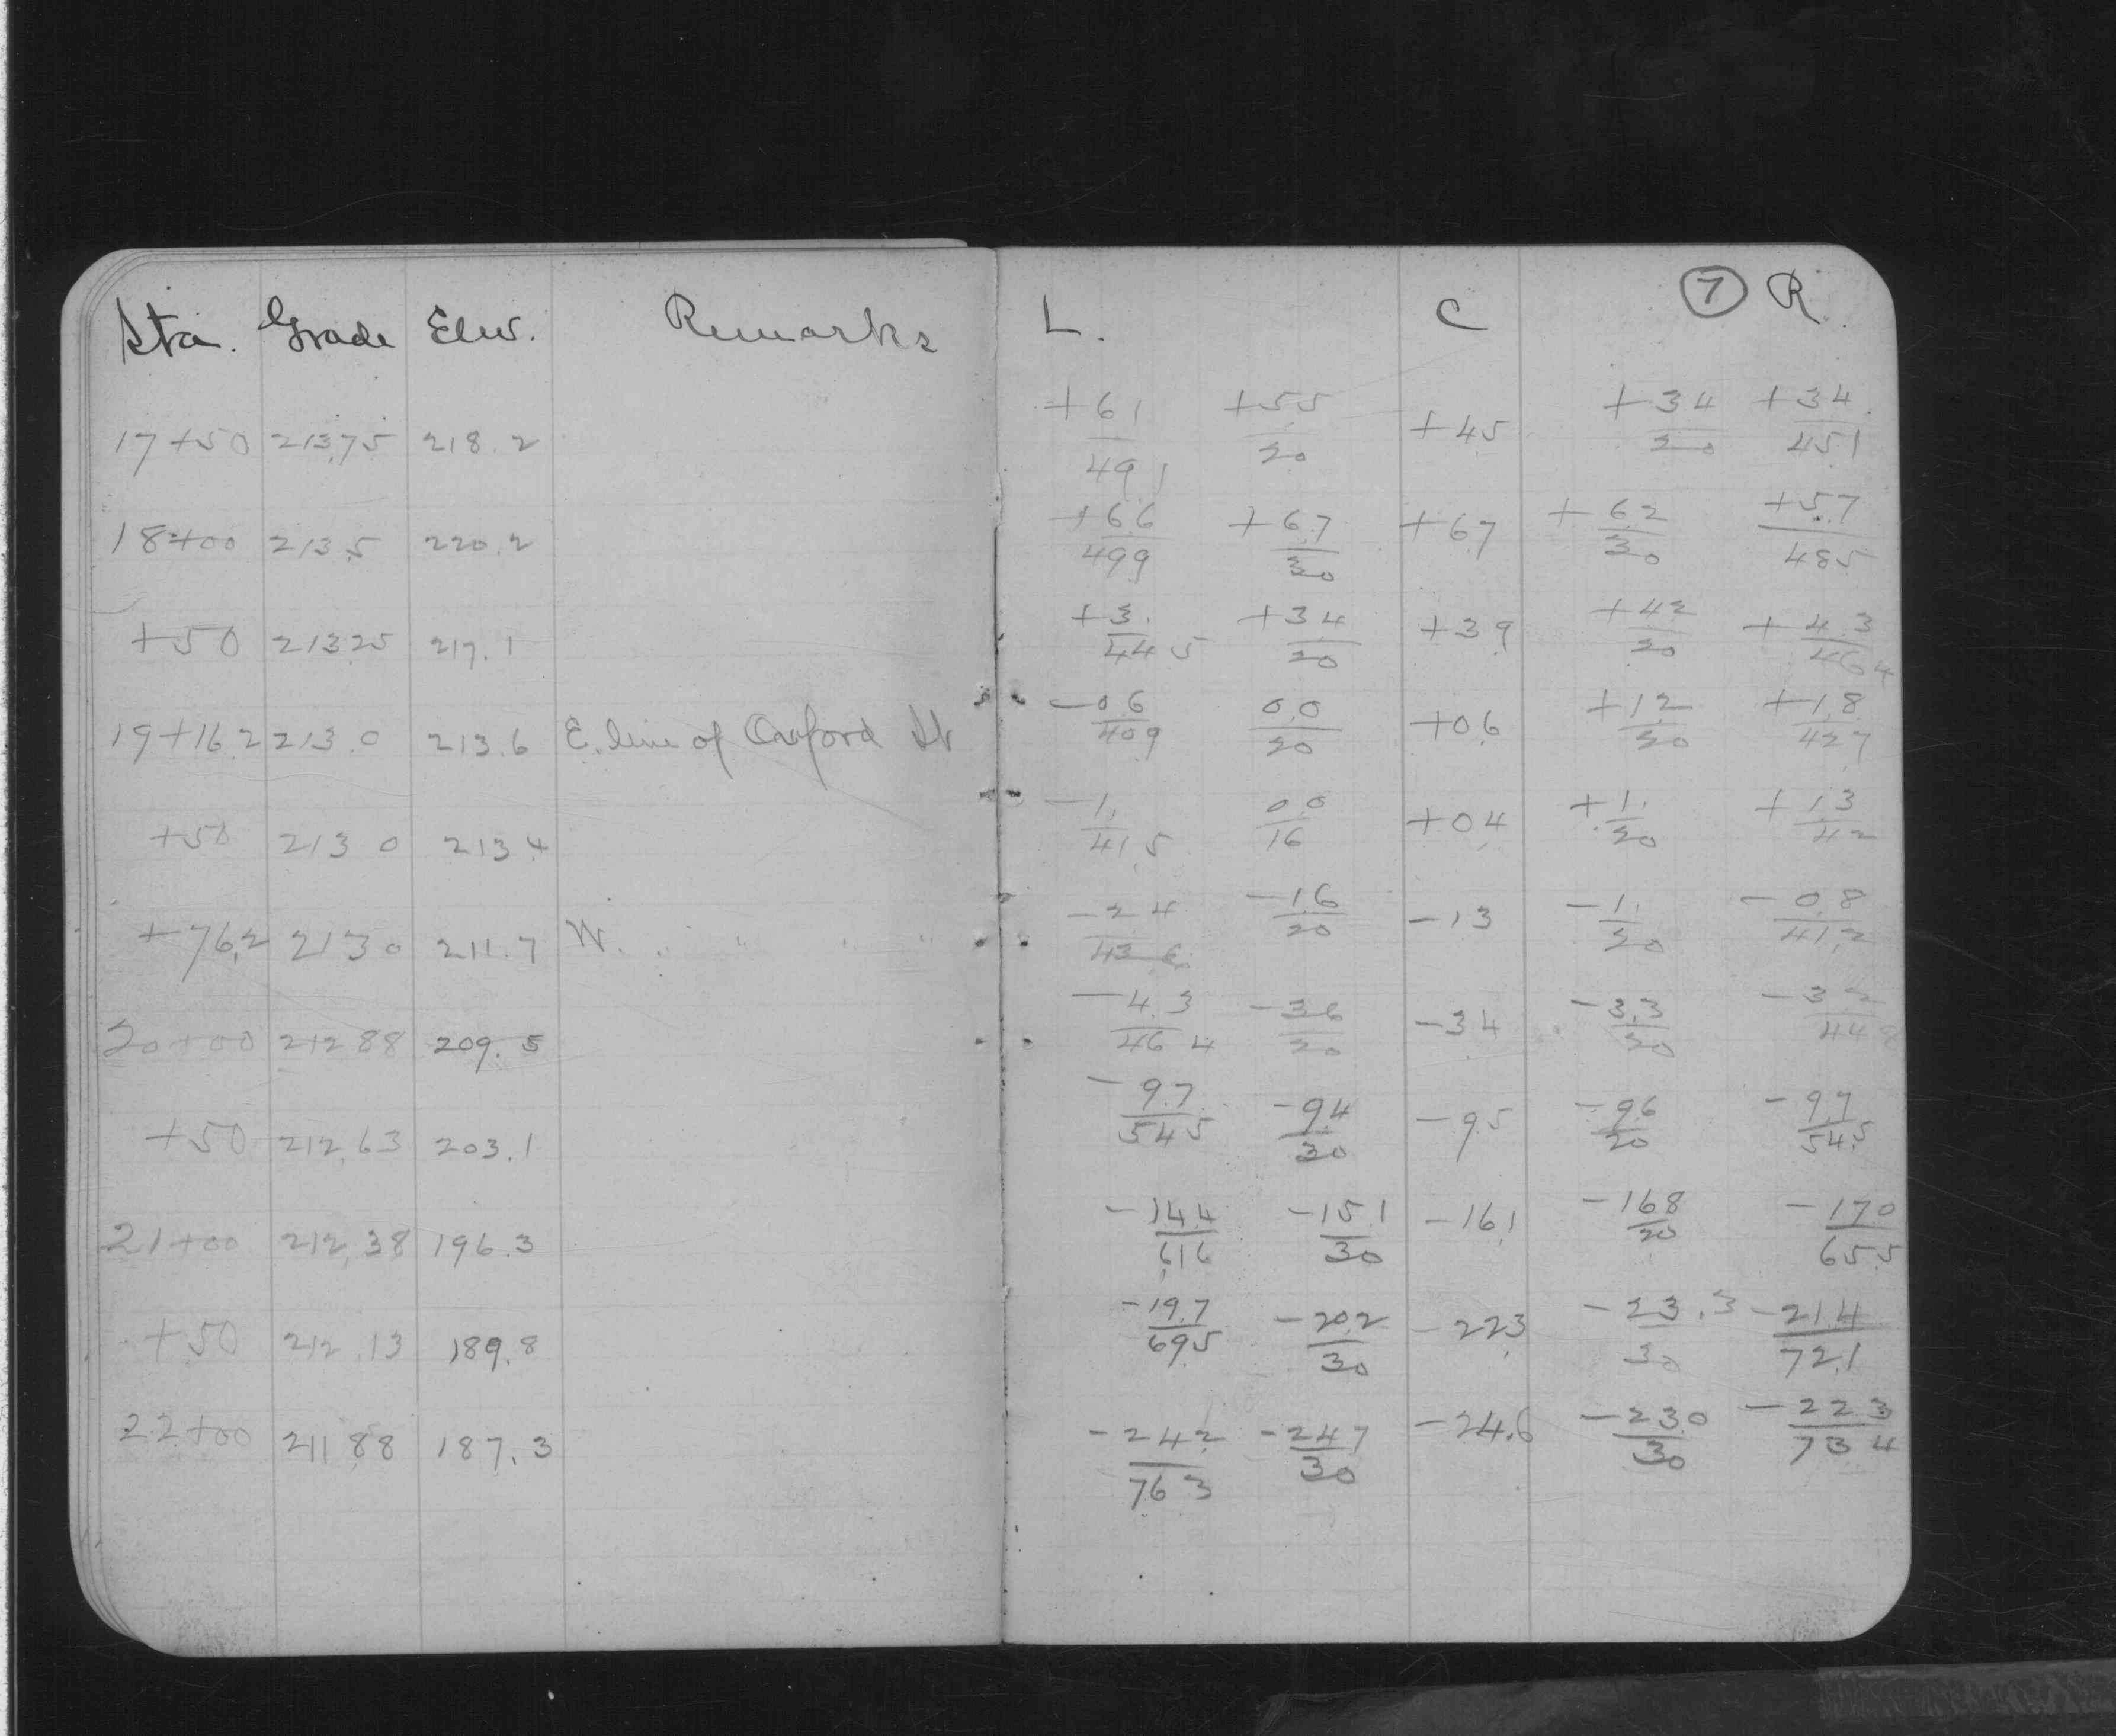 Sta. Grade Elev. Remarks L. C 7 R.
17+50 213.75 218.2 +6.1/49.1 +5.5/20 +4.5 +3.4/20 +3.4/45.1
18+00 213.5 220.2 +6.6/49.9 +6.7/30 +6.7 +6.2/30 +5.7/48.5
+50 213.25 217.1 +3./44.5 +3.4/20 +3.9 +4.2/20 +4.3/46.4
19+16.2 213.0 213.6 E. line of Oxford St -0.6/40.9 0.0/20 +0.6 +1.2/20 +1.8/42.7
+50 213.0 213.4 -1./41.5 0.0/16 +0.4 +1./20 +1.3/42
+76.2 213.0 211.7 W. " " " " -2.4/43.6 -1.6/20 -1.3 -1./20 -0.8/41.2
20+00 212.88 209.5 -4.3/46.4 -3.6/20 -3.4 -3.3/20 -3.2/44.8
+50 212.63 203.1 -9.7/54.5 -9.4/30 -9.5 -9.6/20 -9.7/54.5
21+00 212.38 196.3 -14.4/61.6 -15.1/30 -16.1 -16.8/20 -17.0/65.5
+50 212.13 189.8 -19.7/69.5 -20.2/30 -22.3 -23.3/30 -21.4/72.1
22+00 211.88 187.3 -24.2/76.3 -24.7/30 -24.6 -23.0/30 -22.3/73.4